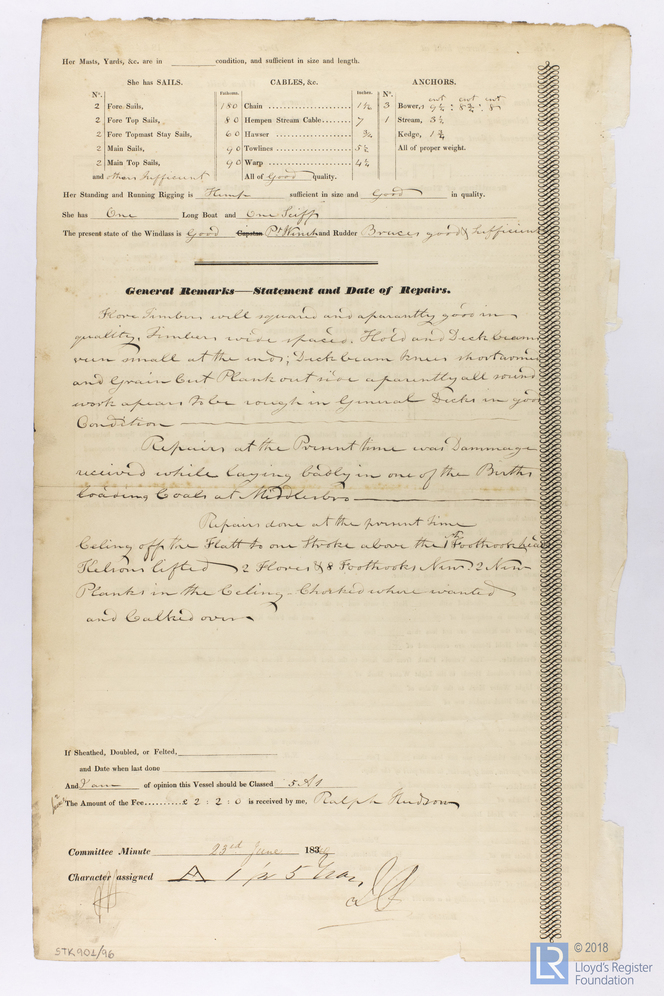 Her Masts, Yards, &c. are in ________ condition, and sufficient in size and length.
She has SAILS. CABLES, &c. ANCHORS.
N°. Fathoms. Inches. N°.
2 Fore Sails, 180 Chain 1½ 3 Bowers, cwt cwt cwt
2 Fore Top Sails, 80 Hempen Stream Cable 7 1 Stream,
2 Fore Topmast Stay Sails, 60 Hawser ¾ Kedge,
2 Main Sails, 90 Towlines 5½ All of proper weight.
2 Main Top Sails, 90 Warp 4½
and others Sufficient All of Good quality.
Her Standing and Running Rigging is Hemp sufficient in size and Good in quality.
She has One Long Boat and One Sciff
The present state of the Windlass is Good Capstan Pt Winch and Rudder Braces good & Sufficient
General Remarks—Statement and Date of Repairs.
Flore Timbers will squared and aparantly good in
quality, Timbers wide spaced. Hold and Deck beams
run small at the ends; Deck beam knees short armed
and Grain Cut Plank out side aparently all sound
work apears to be rough in General Decks in good
Condition
Repairs at the Present time was Dammage
received while laying badly in one of the Births
loading Coals at Middlesbro
Repairs done at the present time
Celing off the Flatt to one Stroke above the 1st Foothook head
Kelsons lifted 2 Flores & 8 Foothooks New. 2 New
Planks in the Celing - Chocked where wanted
and Calked over
If Sheathed, Doubled, or Felted,
and Date when last done
And I am of opinion this Vessel should be Classed 5 A1
The Amount of the Fee..........£ 2 : 2 : 0 is received by me, Ralph Hudson
Committee Minute 23rd June 183
Character assigned A 1 for 5 Years
STK901/96
LR © 2018
Lloyd's Register
Foundation